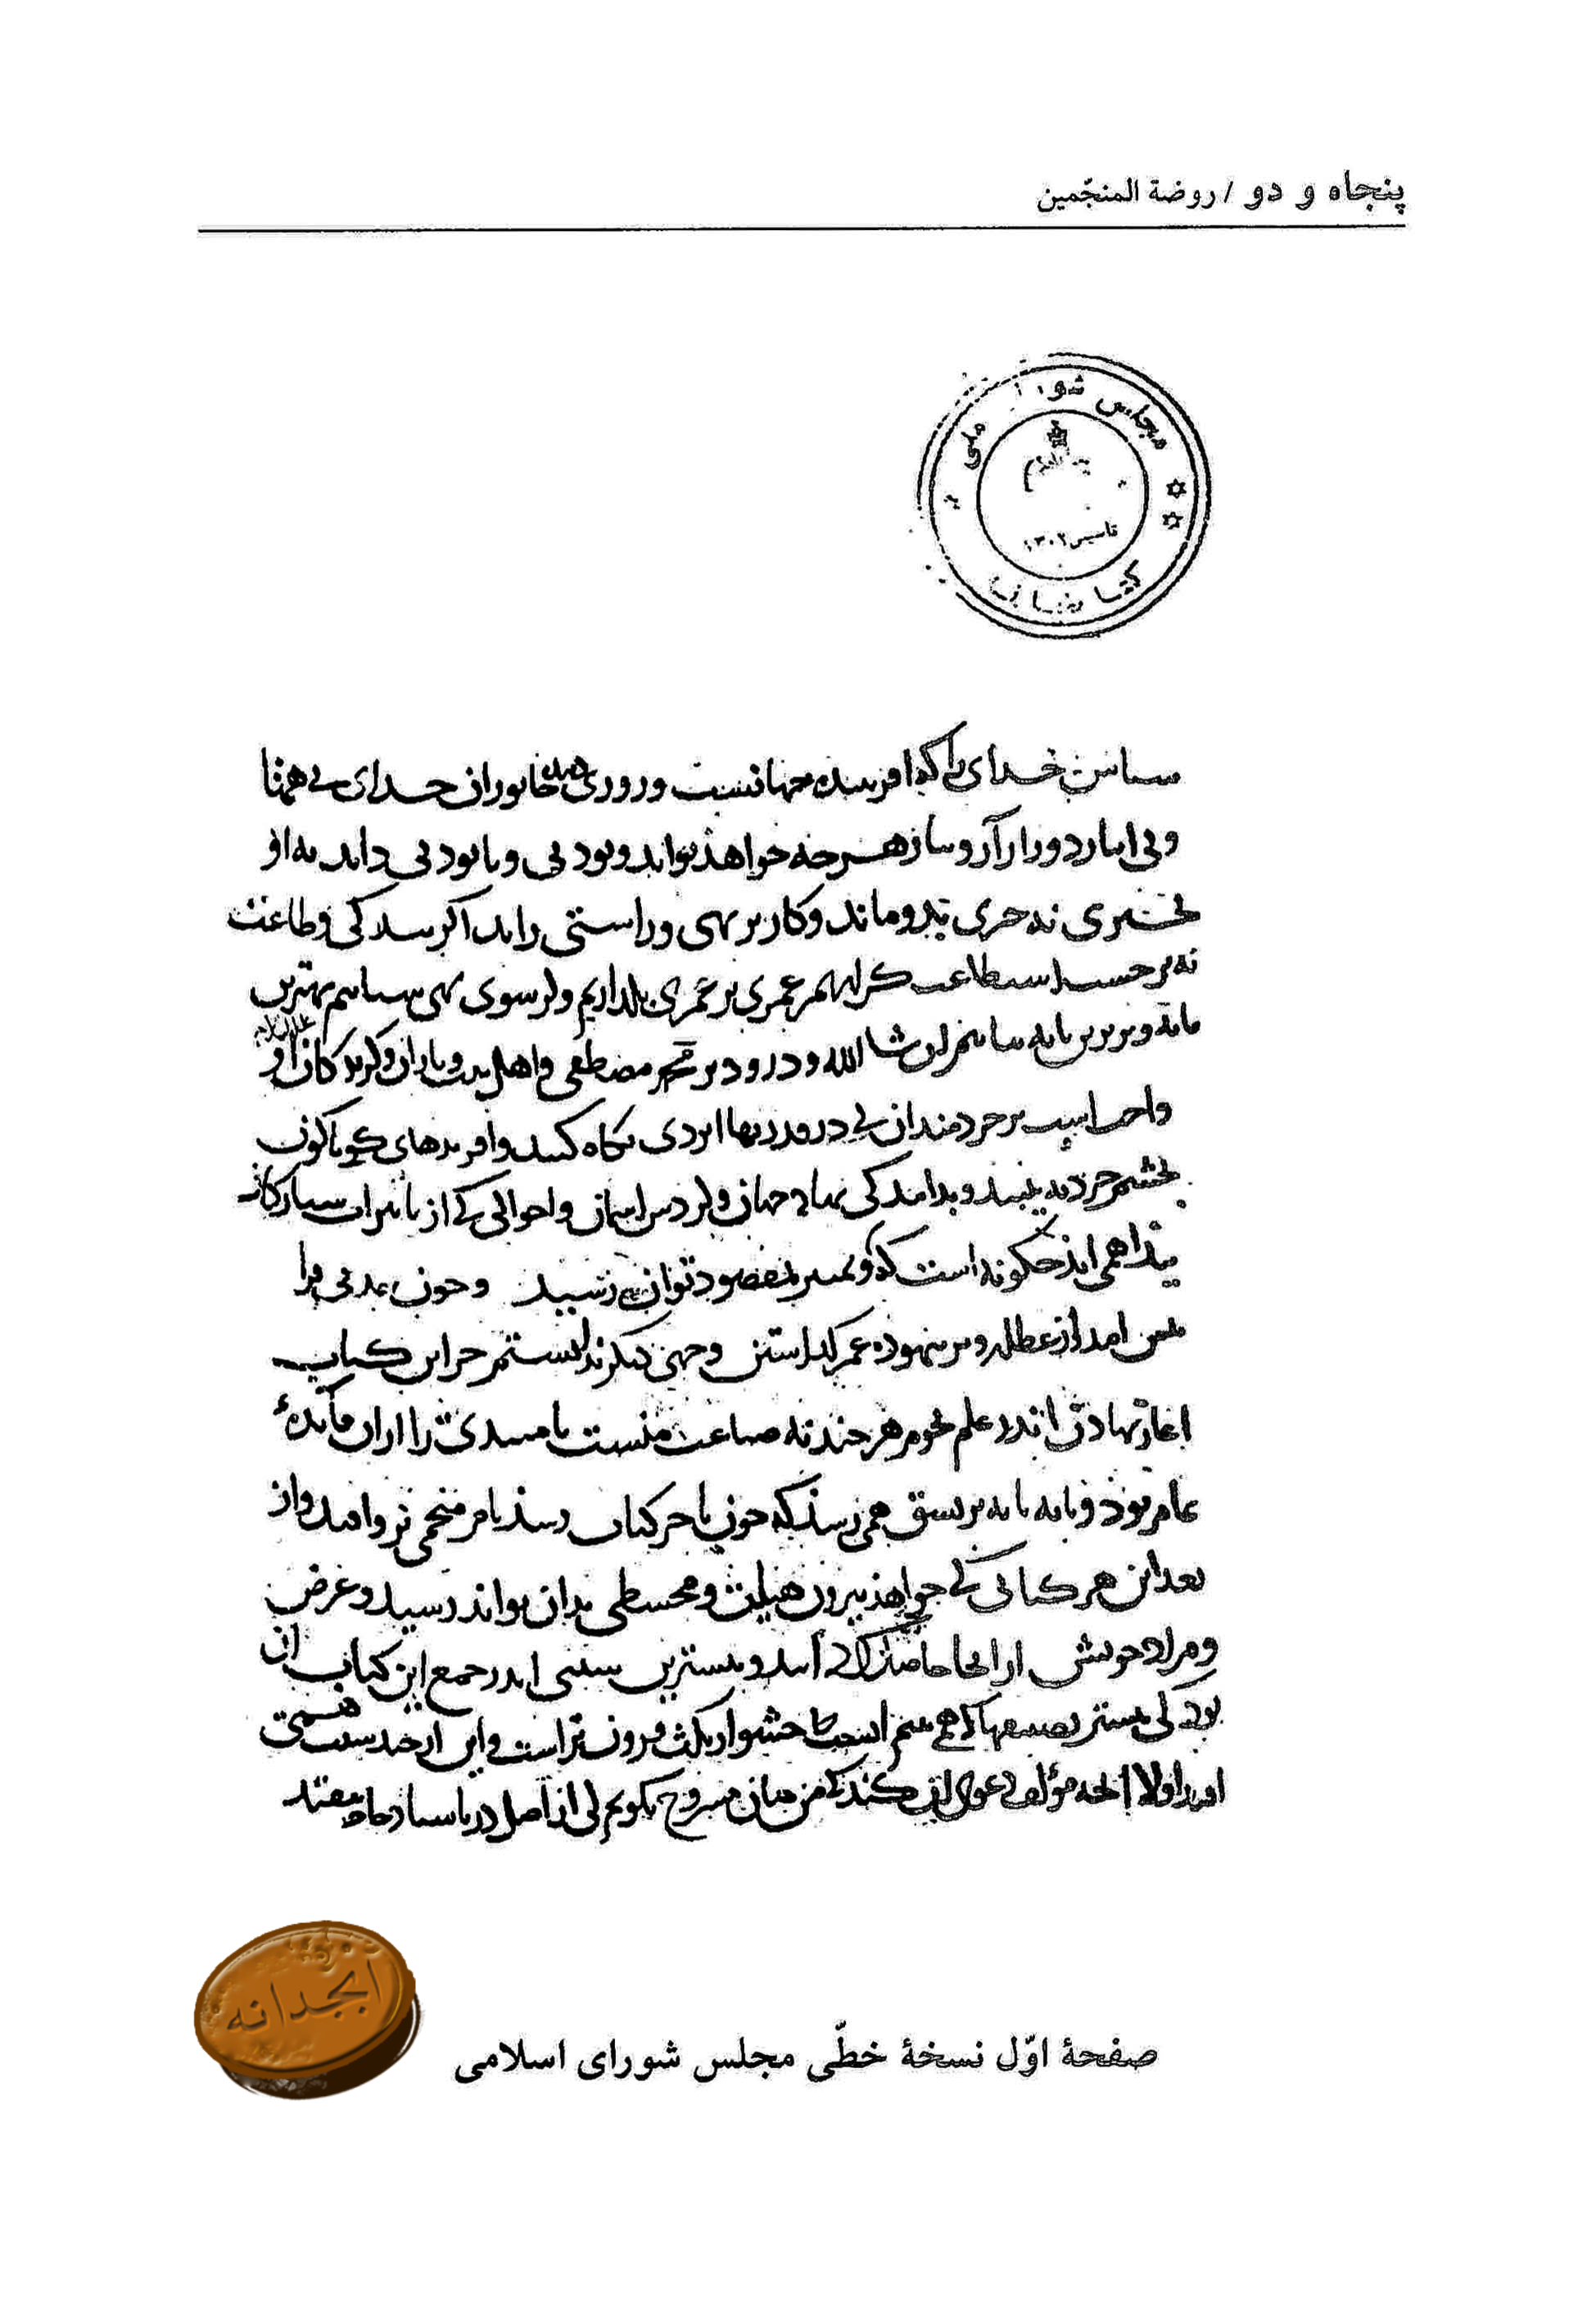 پنجاه و دو / روضة المنجّمین
مجلس شورا ملی
تاسیس ۱۳۰۲
کتابخانه
سپاس خدای را که آفریننده جهانست و روزی ده جانوران خدای بی همتا
و بی انباز و دور از آز و نیاز هرچه خواهد تواند و بود بی و نابود بی داند نه از
نه چیزی بدو ماند و کار بر بهی و راستی راند اگر بندگی و طاعت
نه بر حسب استطاعت کنیم عمری بر عمری داریم و از سوی بهترین
ان شا الله و درود بر محمد مصطفی و اهل بیت و یاران و گزیدگان او علیه السلام
واجب است بر خردمندان کی در ایزدی نگاه کنند و آفریدهای گوناگون
بچشم خرد به بینند و بدانند کی نهاد جهان و گردش آسمان و احوالی کی از تاثیرات ستارگان
پیدا همی آید چگونه است بمقصود توان رسید و چون مدتی مرا
پیش آمد از عطلت و بر بیهوده عمر گذاشتن وجهی دیگر ندانستم جز این کتاب
آغاز نهادن اندر علم نجوم هرچند نه صناعت منست تا مبتدی را از آن فایدهٔ
عام بود و پایه پایه بر نسق همی رسد که چون باخر کتاب رسد نام منجمی بر وی افتد و از
بعد ازین هر کتابی کی خواهد بیرون هیئت و مجسطی بدان تواند رسید و غرض
و مراد خویش از آنجا حاصل آید و بیشترین سببی اندر جمع این کتاب آن
بود کی بیشتر تصنیفها کی همی بینم حشو از نکت فزون تر است و این از چند سبب همی
افتد اولا آنچه مؤلف دعوی آن کند کی من میان مشروح بگویم کی از اصل
ابجدانه
صفحهٔ اوّل نسخهٔ خطّی مجلس شورای اسلامی